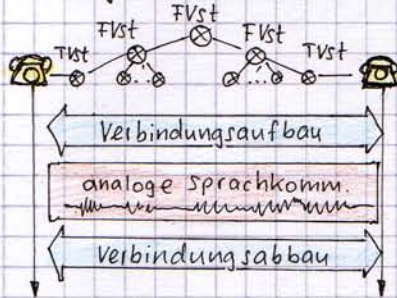 FVst
FVst FVst
TVst TVst
Verbindungsaufbau
analoge Sprachkomm.
Verbindungsabbau